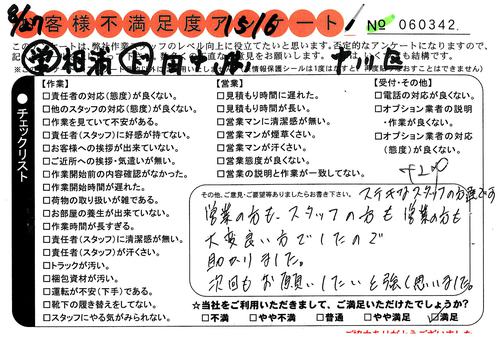 8/27 お客様不満足度アンケート! 15/16 No 060342
【作業】
□責任者の対応(態度)が良くない。
□他のスタッフの対応(態度)が良くない。
□作業を見ていて不安がある。
□責任者(スタッフ)に好感が持てない。
□お客様への挨拶が出来ていない。
□ご近所への挨拶・気遣いが無い。
□作業開始前の内容確認がなかった。
□作業開始時間が遅れた。
□荷物の取り扱いが雑である。
□お部屋の養生が出来ていない。
□作業時間が長すぎる。
□責任者(スタッフ)に清潔感が無い。
□責任者(スタッフ)が汗くさい。
□トラックが汚い。
□梱包資材が汚い。
□運転が不安(下手)である。
□靴下の履き替えをしてない。
□スタッフにやる気がみられない。
●チェックリスト
【営業】
□見積もり時間に遅れた。
□見積もり時間が長い。
□営業マンに清潔感が無い。
□営業マンが煙草くさい。
□営業マンが汗くさい。
□営業態度が良くない。
□営業の説明と作業が一致してない。
【受付・その他】
□電話の対応が良くない。
□オプション業者の説明
・作業が良くない。
□オプション業者の対応
(態度)が良くない。
その他、ご意見・ご要望等ありましたらお書き下さい。
ステキなスタッフの方達です
営業の方も、スタッフの方も 営業の方も
大変良い方でしたので
助かりました。
次回も お願いしたいと強く思いました。
☆当社をご利用いただきまして、ご満足いただけたでしょうか?
□不満 □やや不満 □普通 □やや満足 ☑満足